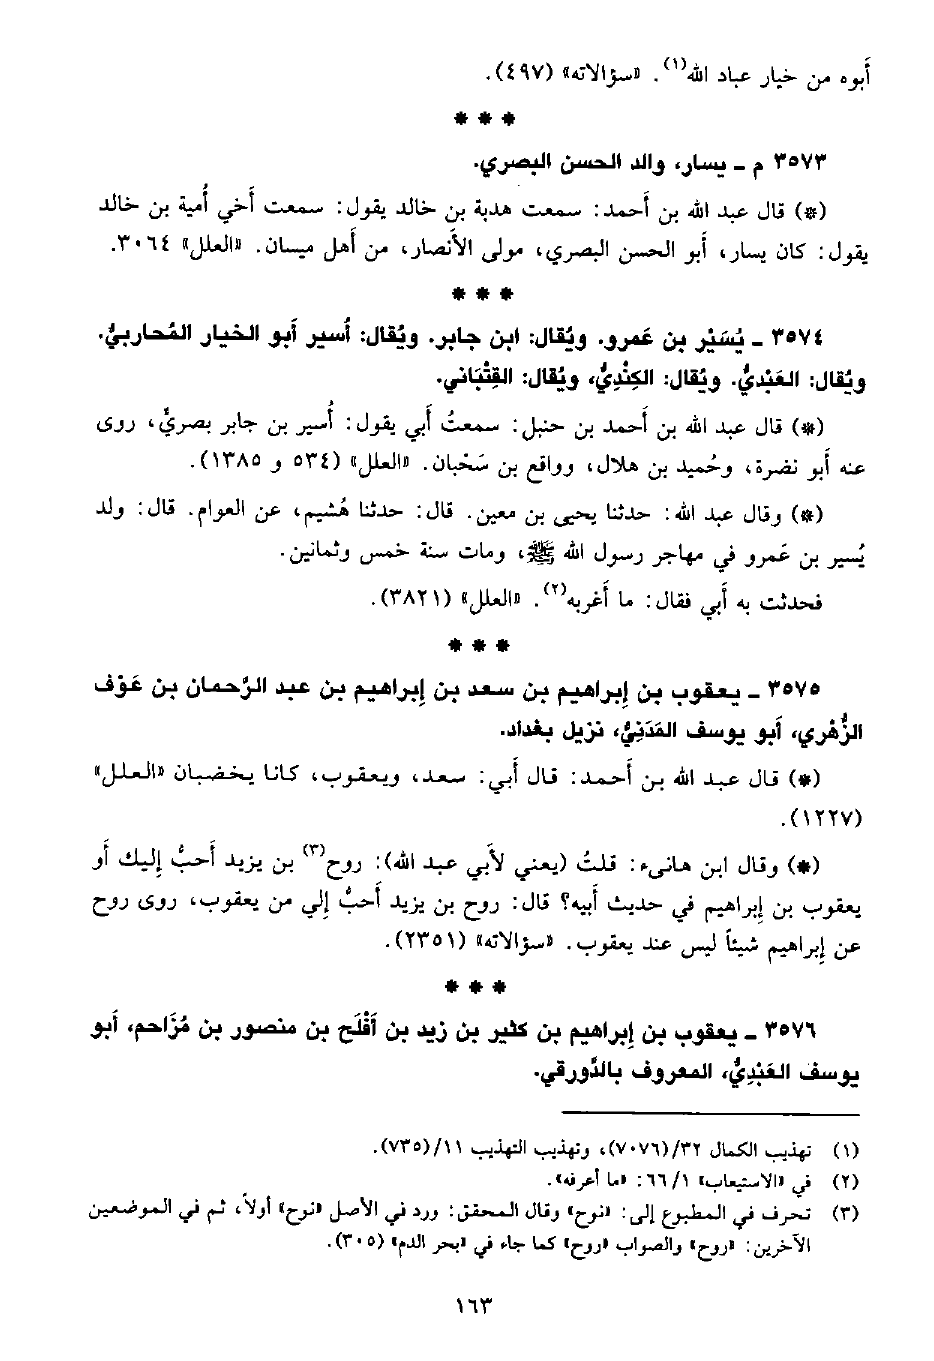 أَبوه من خيار عباد الله(١). «سؤالاته» (٤٩٧).
* * *
٣٥٧٣ م ـ يسار، والد الحسن البصري.
(*) قال عبد الله بن أَحمد: سمعت هدبة بن خالد يقول: سمعت أَخي أُمية بن خالد
يقول: كان يسار، أَبو الحسن البصري، مولى الأَنصار، من أَهل ميسان. «العلل» ٣٠٦٤.
* * *
٣٥٧٤ ـ يُسَيْر بن عَمرو. ويُقال: ابن جابر. ويُقال: أُسير أَبو الخيار المُحاربيُّ.
ويُقال: العَبْديُّ. ويُقال: الكِنْدِيُّ، ويُقال: القِتْبَاني.
(*) قال عبد الله بن أَحمد بن حنبل: سمعتُ أَبي يقول: أُسير بن جابر بصريٌّ، روى
عنه أَبو نضرة، وحُميد بن هلال، وواقع بن سَحْبان. «العلل» (٥٣٤ و ١٣٨٥).
(*) وقال عبد الله: حدثنا يحيى بن معين. قال: حدثنا هُشيم، عن العوام. قال: ولد
يُسير بن عَمرو في مهاجر رسول الله ﷺ، ومات سنة خمس وثمانين.
فحدثت به أَبي فقال: ما أَغربه(٢). «العلل» (٣٨٢١).
* * *
٣٥٧٥ ـ يعقوب بن إِبراهيم بن سعد بن إِبراهيم بن عبد الرَّحمان بن عَوْف
الزُّهْري، أَبو يوسف المَدَنِيُّ، نزيل بغداد.
(*) قال عبد الله بن أَحمد: قال أَبي: سعد، ويعقوب، كانا يخضبان «العلل»
(١٢٢٧).
(*) وقال ابن هانىء: قلتُ (يعني لأَبي عبد الله): روح(٣) بن يزيد أَحبُّ إِليك أَو
يعقوب بن إِبراهيم في حديث أَبيه؟ قال: روح بن يزيد أَحبُّ إِلي من يعقوب، روى روح
عن إِبراهيم شيئاً ليس عند يعقوب. «سؤالاته» (٢٣٥١).
* * *
٣٥٧٦ ـ يعقوب بن إِبراهيم بن كثير بن زيد بن أَفْلَح بن منصور بن مُزَاحم، أَبو
يوسف العَبْدِيُّ، المعروف بالدَّورقي.
(١) تهذيب الكمال ٣٢/(٧٠٧٦)، وتهذيب التهذيب ١١/(٧٣٥).
(٢) في «الاستيعاب» ١/ ٦٦: «ما أعرفه».
(٣) تحرف في المطبوع إلى: «نوح» وقال المحقق: ورد في الأصل «نوح» أولاً، ثم في الموضعين
الآخرين: «روح» والصواب «روح» كما جاء في «بحر الدم» (٣٠٥).
١٦٣